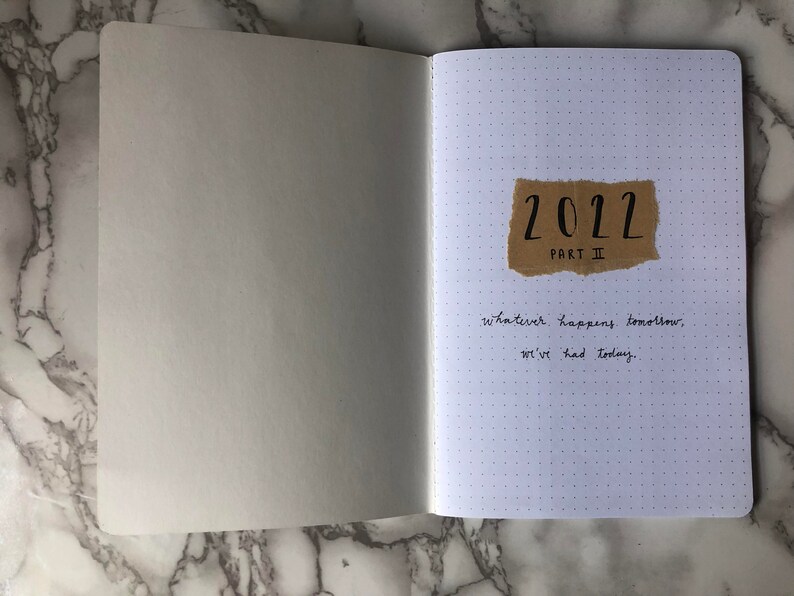 2022
PART II
whatever happens tomorrow,
we've had today.